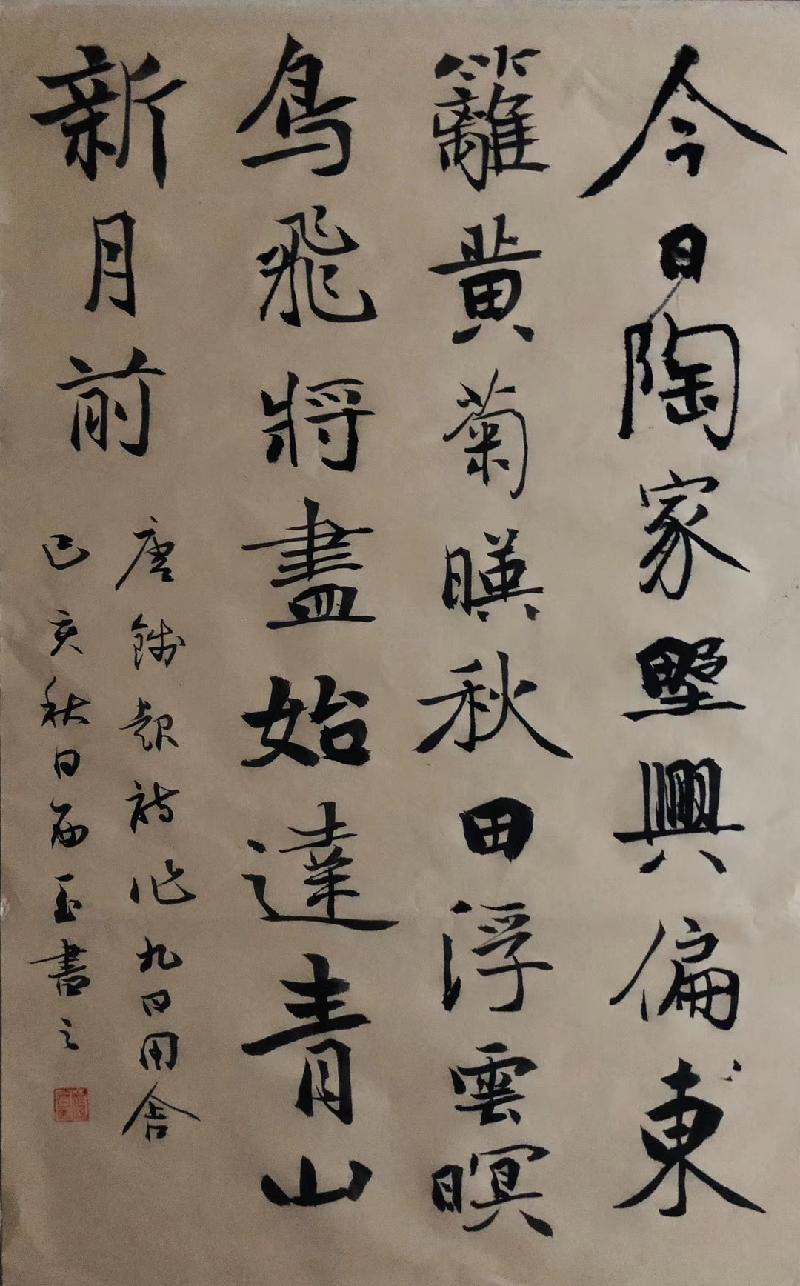 今日陶家墅興偏東
籬黄菊暎秋田浮雲暝
鳥飛將盡始達青山
新月前
唐錢起詩作九日田舍
己亥秋日玉書之